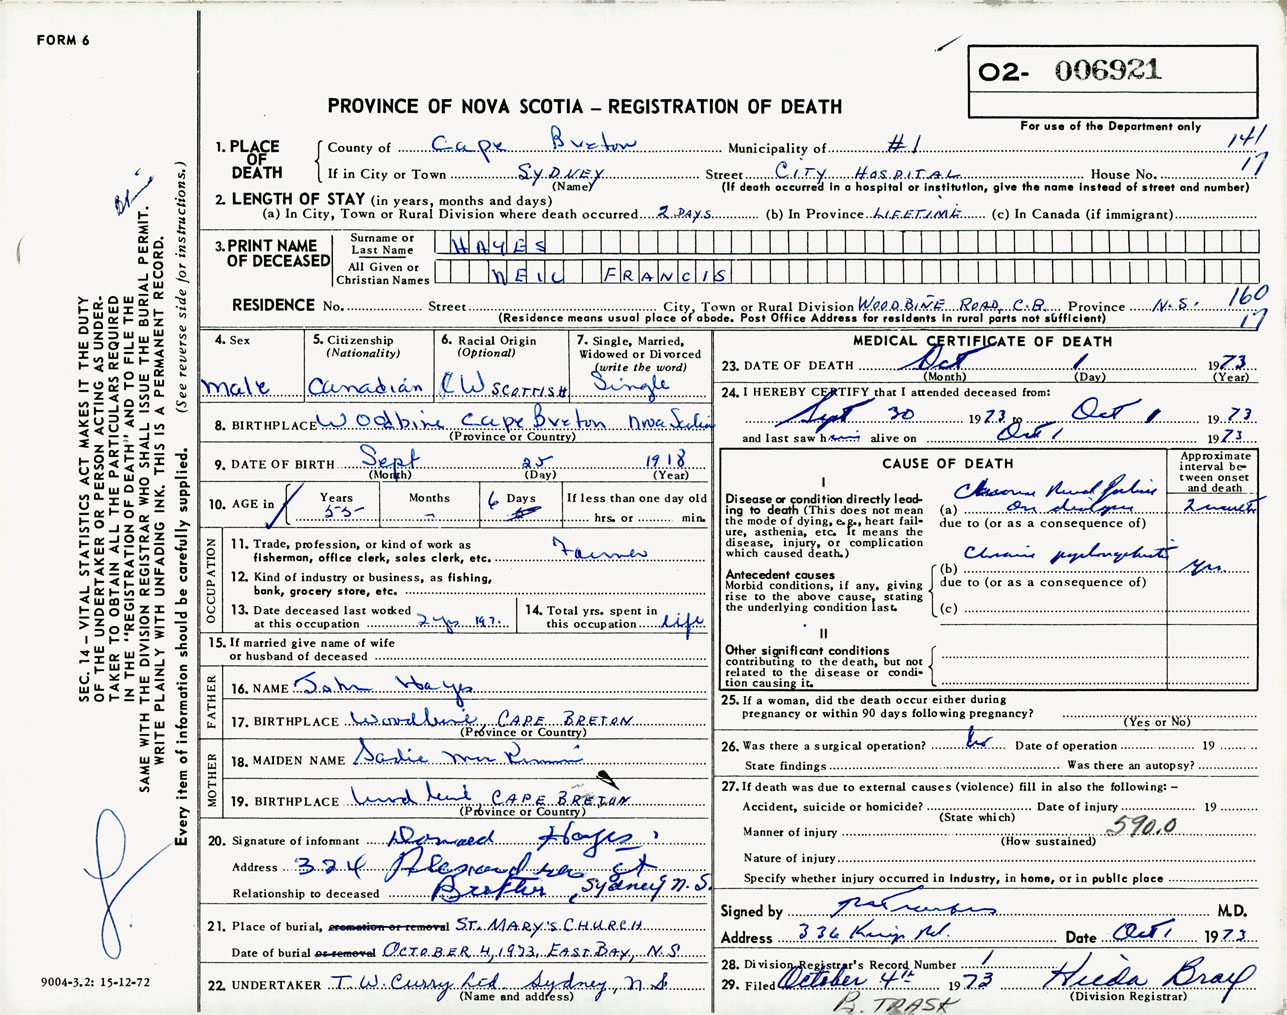 FORM 6
O2- 006921
PROVINCE OF NOVA SCOTIA – REGISTRATION OF DEATH
For use of the Department only
1. PLACE OF DEATH
County of Cape Breton Municipality of #1 141
If in City or Town SYDNEY Street CITY HOSPITAL House No. 17
(Name) (If death occurred in a hospital or institution, give the name instead of street and number)
2. LENGTH OF STAY (in years, months and days)
(a) In City, Town or Rural Division where death occurred 2 DAYS (b) In Province LIFETIME (c) In Canada (if immigrant)
3. PRINT NAME OF DECEASED
Surname or Last Name HAYES
All Given or Christian Names NEIL FRANCIS
RESIDENCE No. Street City, Town or Rural Division WOODBINE ROAD, C.B. Province N.S. 160
(Residence means usual place of abode. Post Office Address for residents in rural parts not sufficient) 17
4. Sex
Male
5. Citizenship (Nationality)
Canadian
6. Racial Origin (Optional)
CW SCOTTISH
7. Single, Married, Widowed or Divorced (write the word)
Single
8. BIRTHPLACE Woodbine Cape Breton Nova Scotia
(Province or Country)
9. DATE OF BIRTH Sept 25 1918
(Month) (Day) (Year)
10. AGE in Years Months Days If less than one day old
55 – 6 hrs. or min.
OCCUPATION
11. Trade, profession, or kind of work as fisherman, office clerk, sales clerk, etc. Farmer
12. Kind of industry or business, as fishing, bank, grocery store, etc.
13. Date deceased last worked at this occupation 2 yrs 197.
14. Total yrs. spent in this occupation life
15. If married give name of wife or husband of deceased
FATHER
16. NAME John Hayes
17. BIRTHPLACE Woodbine, CAPE BRETON
(Province or Country)
MOTHER
18. MAIDEN NAME Sadie
19. BIRTHPLACE CAPE BRETON
(Province or Country)
20. Signature of informant Donald Hayes
Address 324 Alexandra St
Relationship to deceased Brother, Sydney N.S.
21. Place of burial, cremation or removal ST. MARY'S CHURCH
Date of burial or removal OCTOBER 4, 1973, EAST BAY, N.S.
22. UNDERTAKER T.W. Curry Ltd. Sydney, N.S
(Name and address)
MEDICAL CERTIFICATE OF DEATH
23. DATE OF DEATH Oct 1 1973
(Month) (Day) (Year)
24. I HEREBY CERTIFY that I attended deceased from:
Sept 30 1973 to Oct 1 1973
and last saw him alive on Oct 1 1973
CAUSE OF DEATH
Approximate interval between onset and death
I
Disease or condition directly leading to death (This does not mean the mode of dying, e.g., heart failure, asthenia, etc. It means the disease, injury, or complication which caused death.)
Chronic Renal failure
(a) on dialysis 2 months
due to (or as a consequence of)
Antecedent causes
Morbid conditions, if any, giving rise to the above cause, stating the underlying condition last.
Chronic pyelonephritis
(b) yrs.
due to (or as a consequence of)
(c)
II
Other significant conditions
contributing to the death, but not related to the disease or condition causing it.
25. If a woman, did the death occur either during pregnancy or within 90 days following pregnancy?
(Yes or No)
26. Was there a surgical operation? No Date of operation 19
State findings Was there an autopsy?
27. If death was due to external causes (violence) fill in also the following: –
Accident, suicide or homicide? Date of injury 19
(State which)
Manner of injury 590.0
(How sustained)
Nature of injury
Specify whether injury occurred in industry, in home, or in public place
Signed by M.D.
Address 336 Kings Rd. Date Oct 1 1973
28. Division Registrar's Record Number 1
29. Filed October 4th 1973 Hilda Bray
(Division Registrar)
B. TRASK
SEC. 14 – VITAL STATISTICS ACT MAKES IT THE DUTY
OF THE UNDERTAKER OR PERSON ACTING AS UNDER-
TAKER TO OBTAIN ALL THE PARTICULARS REQUIRED
IN THE "REGISTRATION OF DEATH" AND TO FILE THE
SAME WITH THE DIVISION REGISTRAR WHO SHALL ISSUE THE BURIAL PERMIT.
WRITE PLAINLY WITH UNFADING INK. THIS IS A PERMANENT RECORD.
Every item of information should be carefully supplied. (See reverse side for instructions.)
9004-3.2: 15-12-72